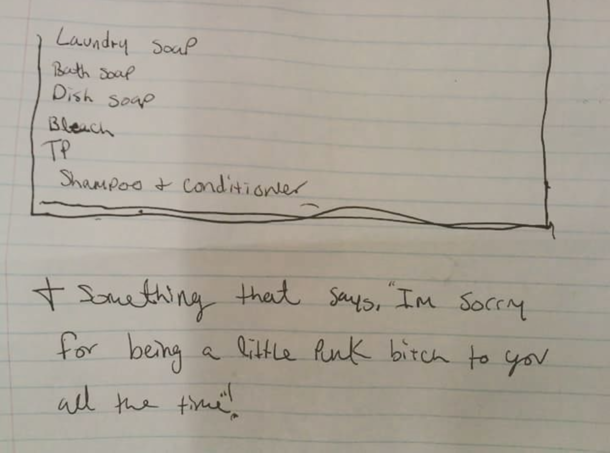 Laundry soap
Bath soap
Dish soap
Bleach
TP
Shampoo + conditioner
+ Something that says, "Im sorry
for being a little punk bitch to you
all the time"!